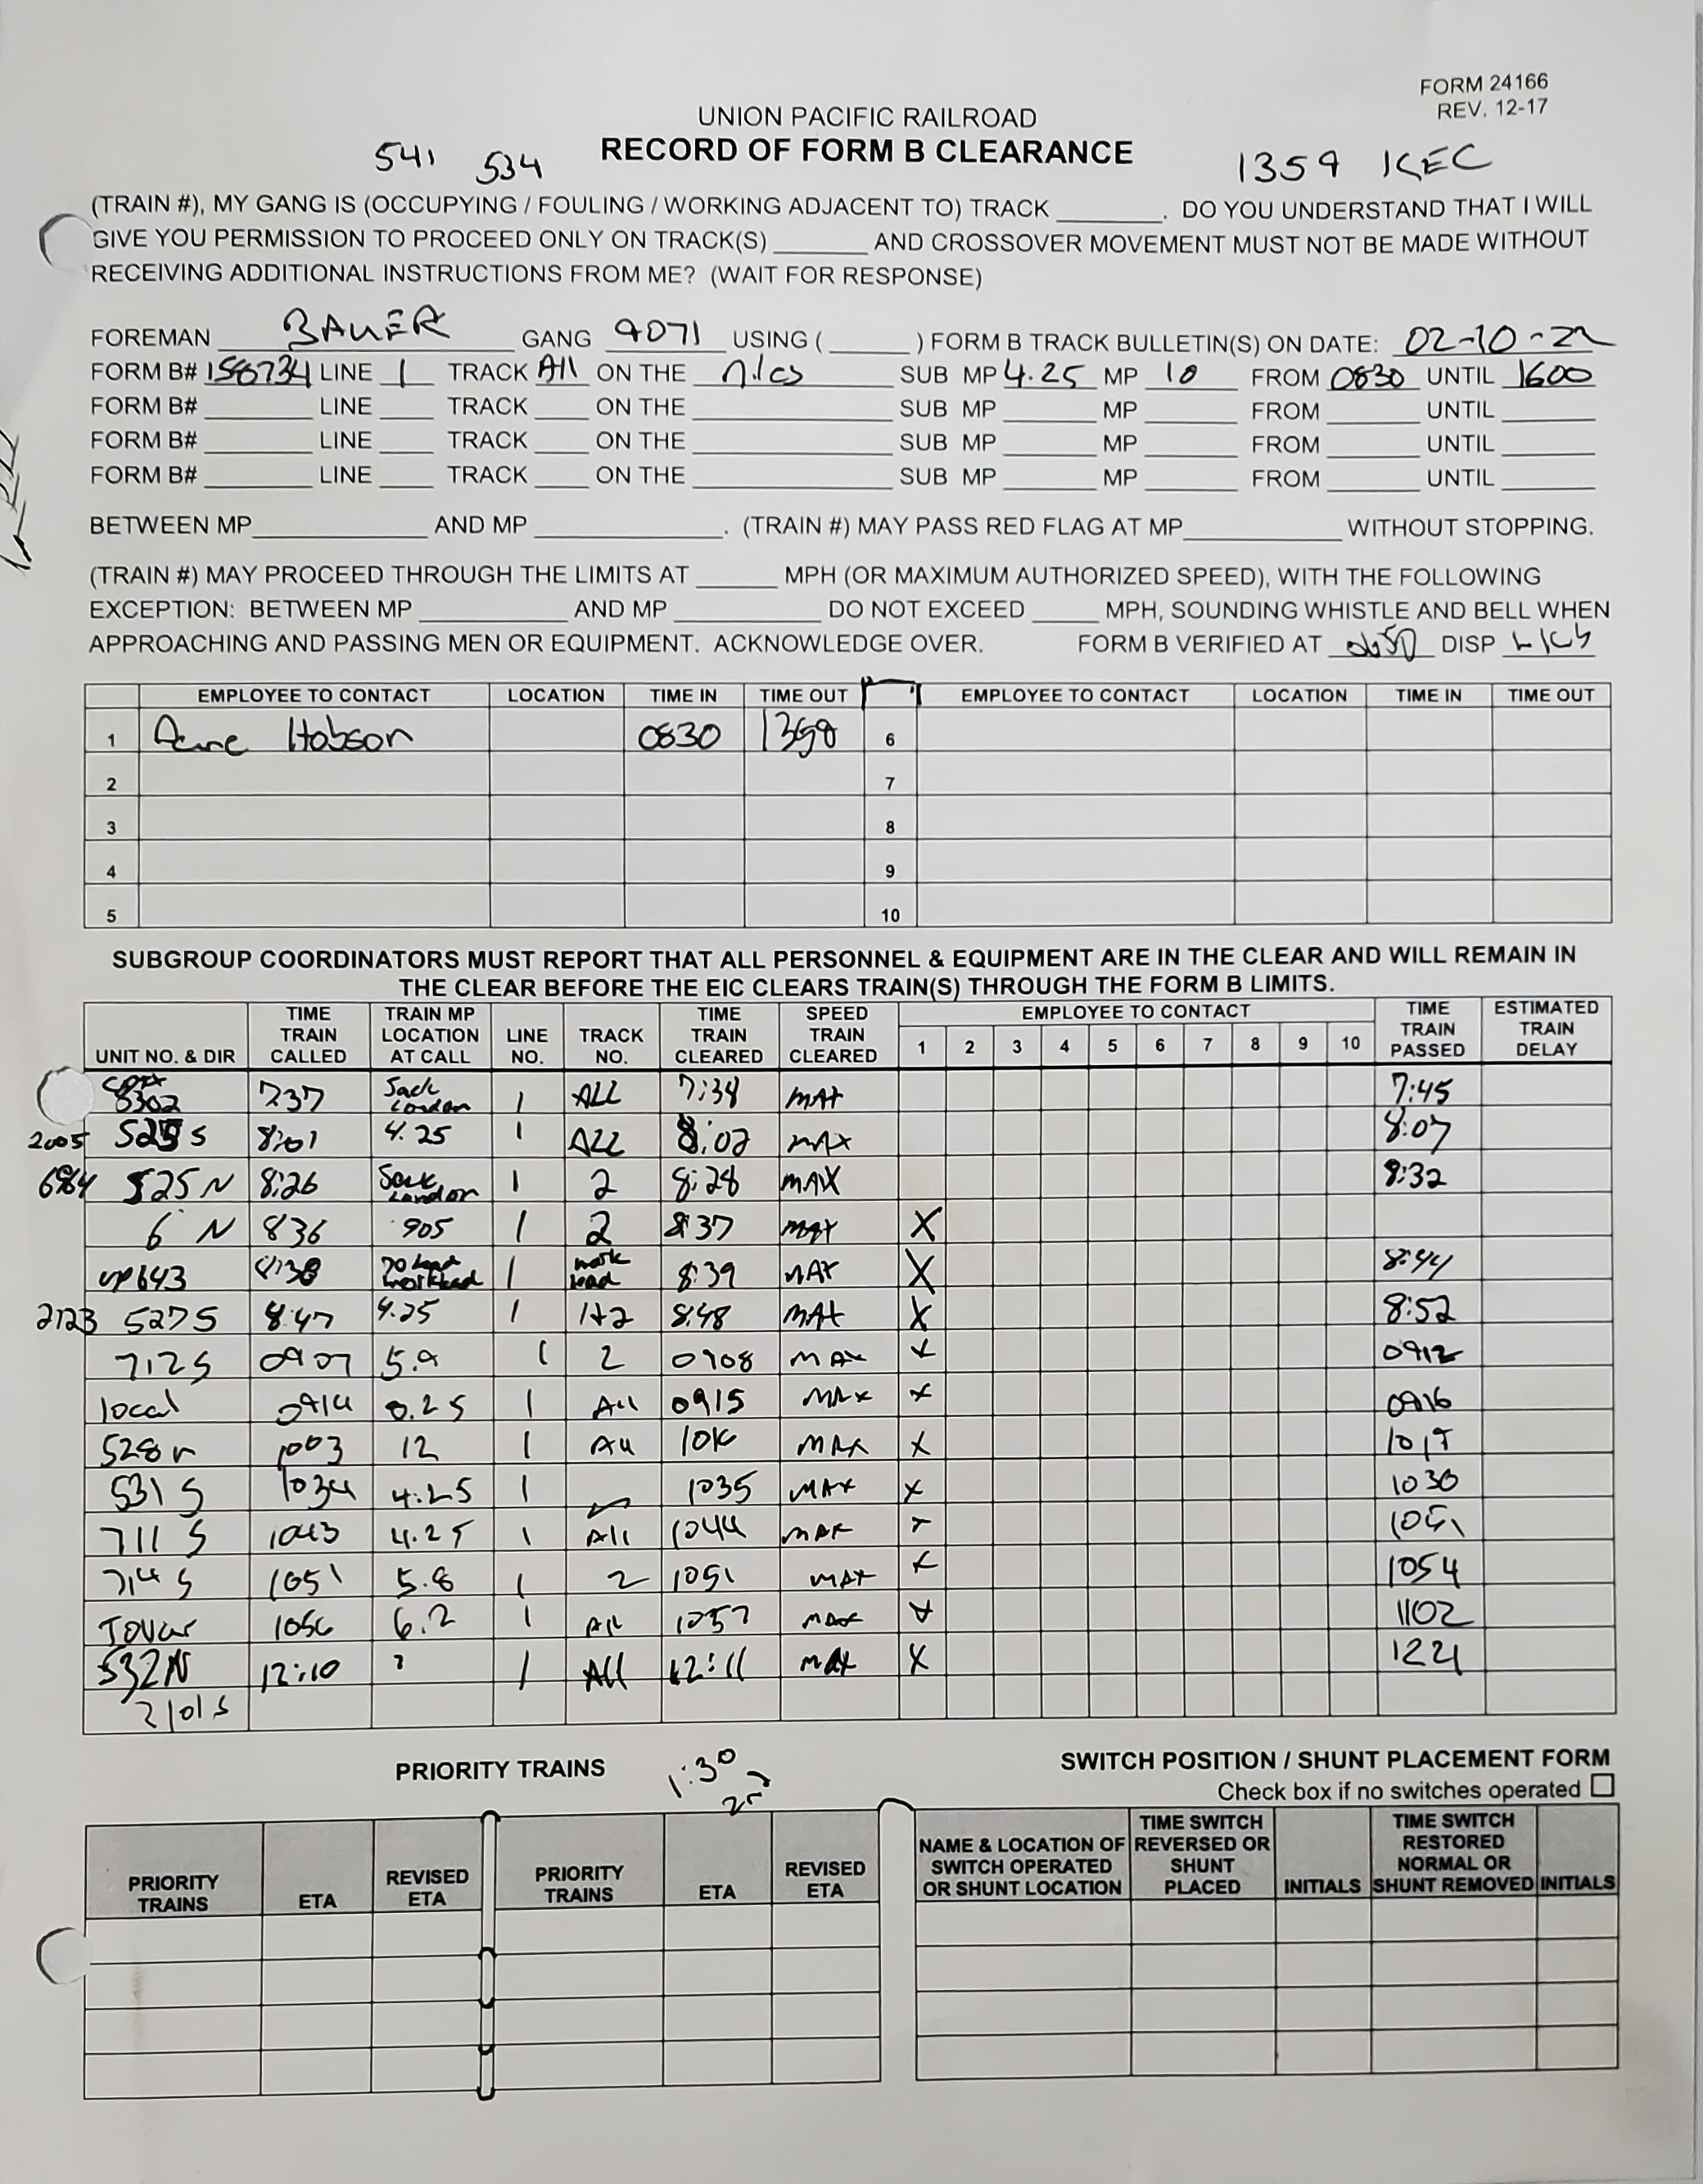 FORM 24166
REV. 12-17
UNION PACIFIC RAILROAD
541 534 RECORD OF FORM B CLEARANCE 1359 KEC
(TRAIN #), MY GANG IS (OCCUPYING / FOULING / WORKING ADJACENT TO) TRACK ________. DO YOU UNDERSTAND THAT I WILL
GIVE YOU PERMISSION TO PROCEED ONLY ON TRACK(S) _______ AND CROSSOVER MOVEMENT MUST NOT BE MADE WITHOUT
RECEIVING ADDITIONAL INSTRUCTIONS FROM ME? (WAIT FOR RESPONSE)
FOREMAN BAUER GANG 9071 USING ( ______ ) FORM B TRACK BULLETIN(S) ON DATE: 02-10-22
FORM B# 158734 LINE 1 TRACK All ON THE Niles SUB MP 4.25 MP 10 FROM 0830 UNTIL 1600
FORM B# ________ LINE ____ TRACK ____ ON THE ________ SUB MP ________ MP ________ FROM ________ UNTIL ________
FORM B# ________ LINE ____ TRACK ____ ON THE ________ SUB MP ________ MP ________ FROM ________ UNTIL ________
FORM B# ________ LINE ____ TRACK ____ ON THE ________ SUB MP ________ MP ________ FROM ________ UNTIL ________
BETWEEN MP ________ AND MP ________. (TRAIN #) MAY PASS RED FLAG AT MP ________ WITHOUT STOPPING.
(TRAIN #) MAY PROCEED THROUGH THE LIMITS AT ______ MPH (OR MAXIMUM AUTHORIZED SPEED), WITH THE FOLLOWING
EXCEPTION: BETWEEN MP ________ AND MP ________ DO NOT EXCEED _____ MPH, SOUNDING WHISTLE AND BELL WHEN
APPROACHING AND PASSING MEN OR EQUIPMENT. ACKNOWLEDGE OVER. FORM B VERIFIED AT DISP
EMPLOYEE TO CONTACT LOCATION TIME IN TIME OUT EMPLOYEE TO CONTACT LOCATION TIME IN TIME OUT
1 Hobson 0830 1359 6
2 7
3 8
4 9
5 10
SUBGROUP COORDINATORS MUST REPORT THAT ALL PERSONNEL & EQUIPMENT ARE IN THE CLEAR AND WILL REMAIN IN
THE CLEAR BEFORE THE EIC CLEARS TRAIN(S) THROUGH THE FORM B LIMITS.
UNIT NO. & DIR TIME TRAIN CALLED TRAIN MP LOCATION AT CALL LINE NO. TRACK NO. TIME TRAIN CLEARED SPEED TRAIN CLEARED EMPLOYEE TO CONTACT 1 2 3 4 5 6 7 8 9 10 TIME TRAIN PASSED ESTIMATED TRAIN DELAY
8302 737 Jack London 1 ALL 7:38 MAX 7:45
2005 S 8:01 4.25 1 ALL 8:02 MAX 8:07
6984 525 N 8:26 Jack London 1 2 8:28 MAX 8:32
6 N 836 905 1 2 837 MAX X
UP643 8:38 1 work lead 8:39 MAX X 8:44
2123 527 S 8:47 4.25 1 1+2 8:48 MAX X 8:52
712 S 0907 5.9 1 2 0908 MAX X 0912
local 0914 0.25 1 All 0915 MAX X 0916
528 N 1003 12 1 All MAX X 1019
531 S 1034 4.25 1 1035 MAX X 1030
711 S 1043 4.25 1 All 1044 MAX X 1051
714 S 1051 5.8 1 2 1051 MAX X 1054
Tovar 1056 6.2 1 All 1057 MAX X 1102
532N 12:10 ? 1 All 12:11 MAX X 1221
2101 S
PRIORITY TRAINS 1:30 25
SWITCH POSITION / SHUNT PLACEMENT FORM
Check box if no switches operated
PRIORITY TRAINS ETA REVISED ETA PRIORITY TRAINS ETA REVISED ETA
NAME & LOCATION OF SWITCH OPERATED OR SHUNT LOCATION TIME SWITCH REVERSED OR SHUNT PLACED INITIALS TIME SWITCH RESTORED NORMAL OR SHUNT REMOVED INITIALS